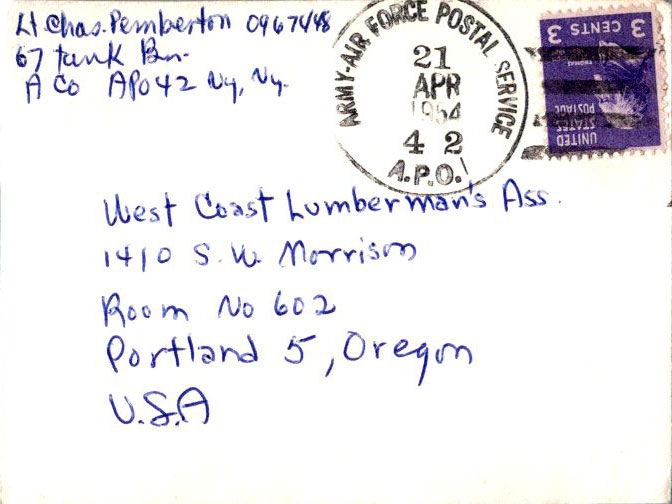 Lt Chas. Pemberton 0967448
67 tank Bn.
A Co APO 42 Ny, Ny.
ARMY-AIR FORCE POSTAL SERVICE
21
APR
1954
4 2
A.P.O.
3 CENTS 3
UNITED
STATES
POSTAGE
West Coast Lumberman's Ass.
1410 S.W. Morrison
Room No 602
Portland 5, Oregon
U.S.A